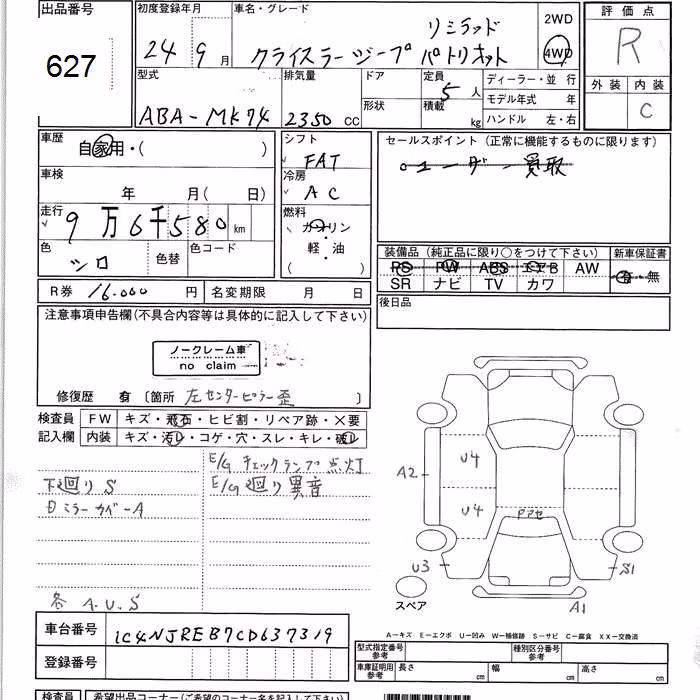 出品番号 627
初度登録年月 24 9月
車名・グレード リミテッド
クライスラージープ パトリオット
2WD
4WD
評価点 R
外装 内装
C
型式 ABA-MK74
排気量 2350 cc
ドア
形状
定員 5人
積載 kg
ディーラー・並行
モデル年式 年
ハンドル 左・右
車歴 自家用・( )
車検 年 月(日)
走行 9万6千580km
色 シロ 色替 色コード
シフト FAT
冷房 AC
燃料 ガソリン
・
軽・油
( )
セールスポイント (正常に機能するものに限ります)
。ユーザー買取
装備品 (純正品に限り○をつけて下さい) 新車保証書
PS PW ABS エアB AW 有・無
SR ナビ TV カワ
後日品
R券 16.000円 名変期限 月 日
注意事項申告欄(不具合内容等は具体的に記入して下さい)
ノークレーム車
no claim
修復歴 有 〔箇所 左センターピラー歪 〕
検査員 FW キズ・飛石・ヒビ割・リペア跡・×要
記入欄 内装 キズ・汚レ・コゲ・穴・スレ・キレ・破レ
E/Gチェックランプ点灯
下廻りS E/G廻り異音
ミラーカバーA
各 A.U.S
A2
U4
U4
アセ
U3
S1
スペア
A1
車台番号 1C4NJREB7CD637319
登録番号
A-キズ E-エクボ U-凹み W-補修跡 S-サビ C-腐食 XX-交換済
型式指定番号 参考
種別区分番号 参考
車庫証明用 参考 長さ cm 幅 cm 高さ cm
検査員 希望出品コーナー(ご希望のコーナー名を記入下さい)